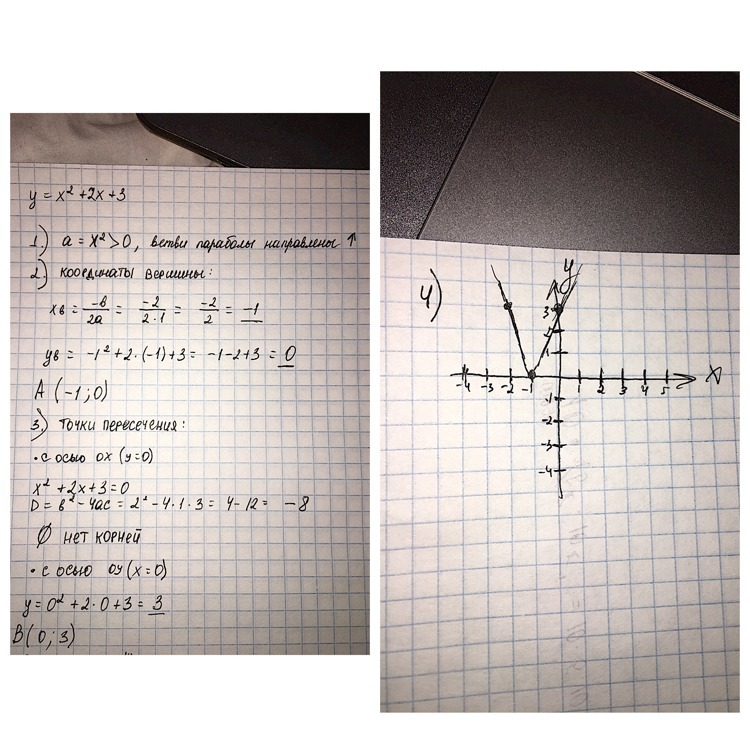 y = x² + 2x + 3
1.) a = x² > 0, ветви параболы направлены ↑
2.) координаты вершины:
xв = -в/2a = -2/2·1 = -2/2 = -1
yв = -1² + 2·(-1) + 3 = -1 - 2 + 3 = 0
A (-1; 0)
3) Точки пересечения:
• с осью ox (y=0)
x² + 2x + 3 = 0
D = в² - 4ac = 2² - 4·1·3 = 4 - 12 = -8
∅ нет корней
• с осью oy (x=0)
y = 0² + 2·0 + 3 = 3
B (0; 3)
4)
y
3
2
1
-4 -3 -2 -1 1 2 3 4 5 x
-1
-2
-3
-4